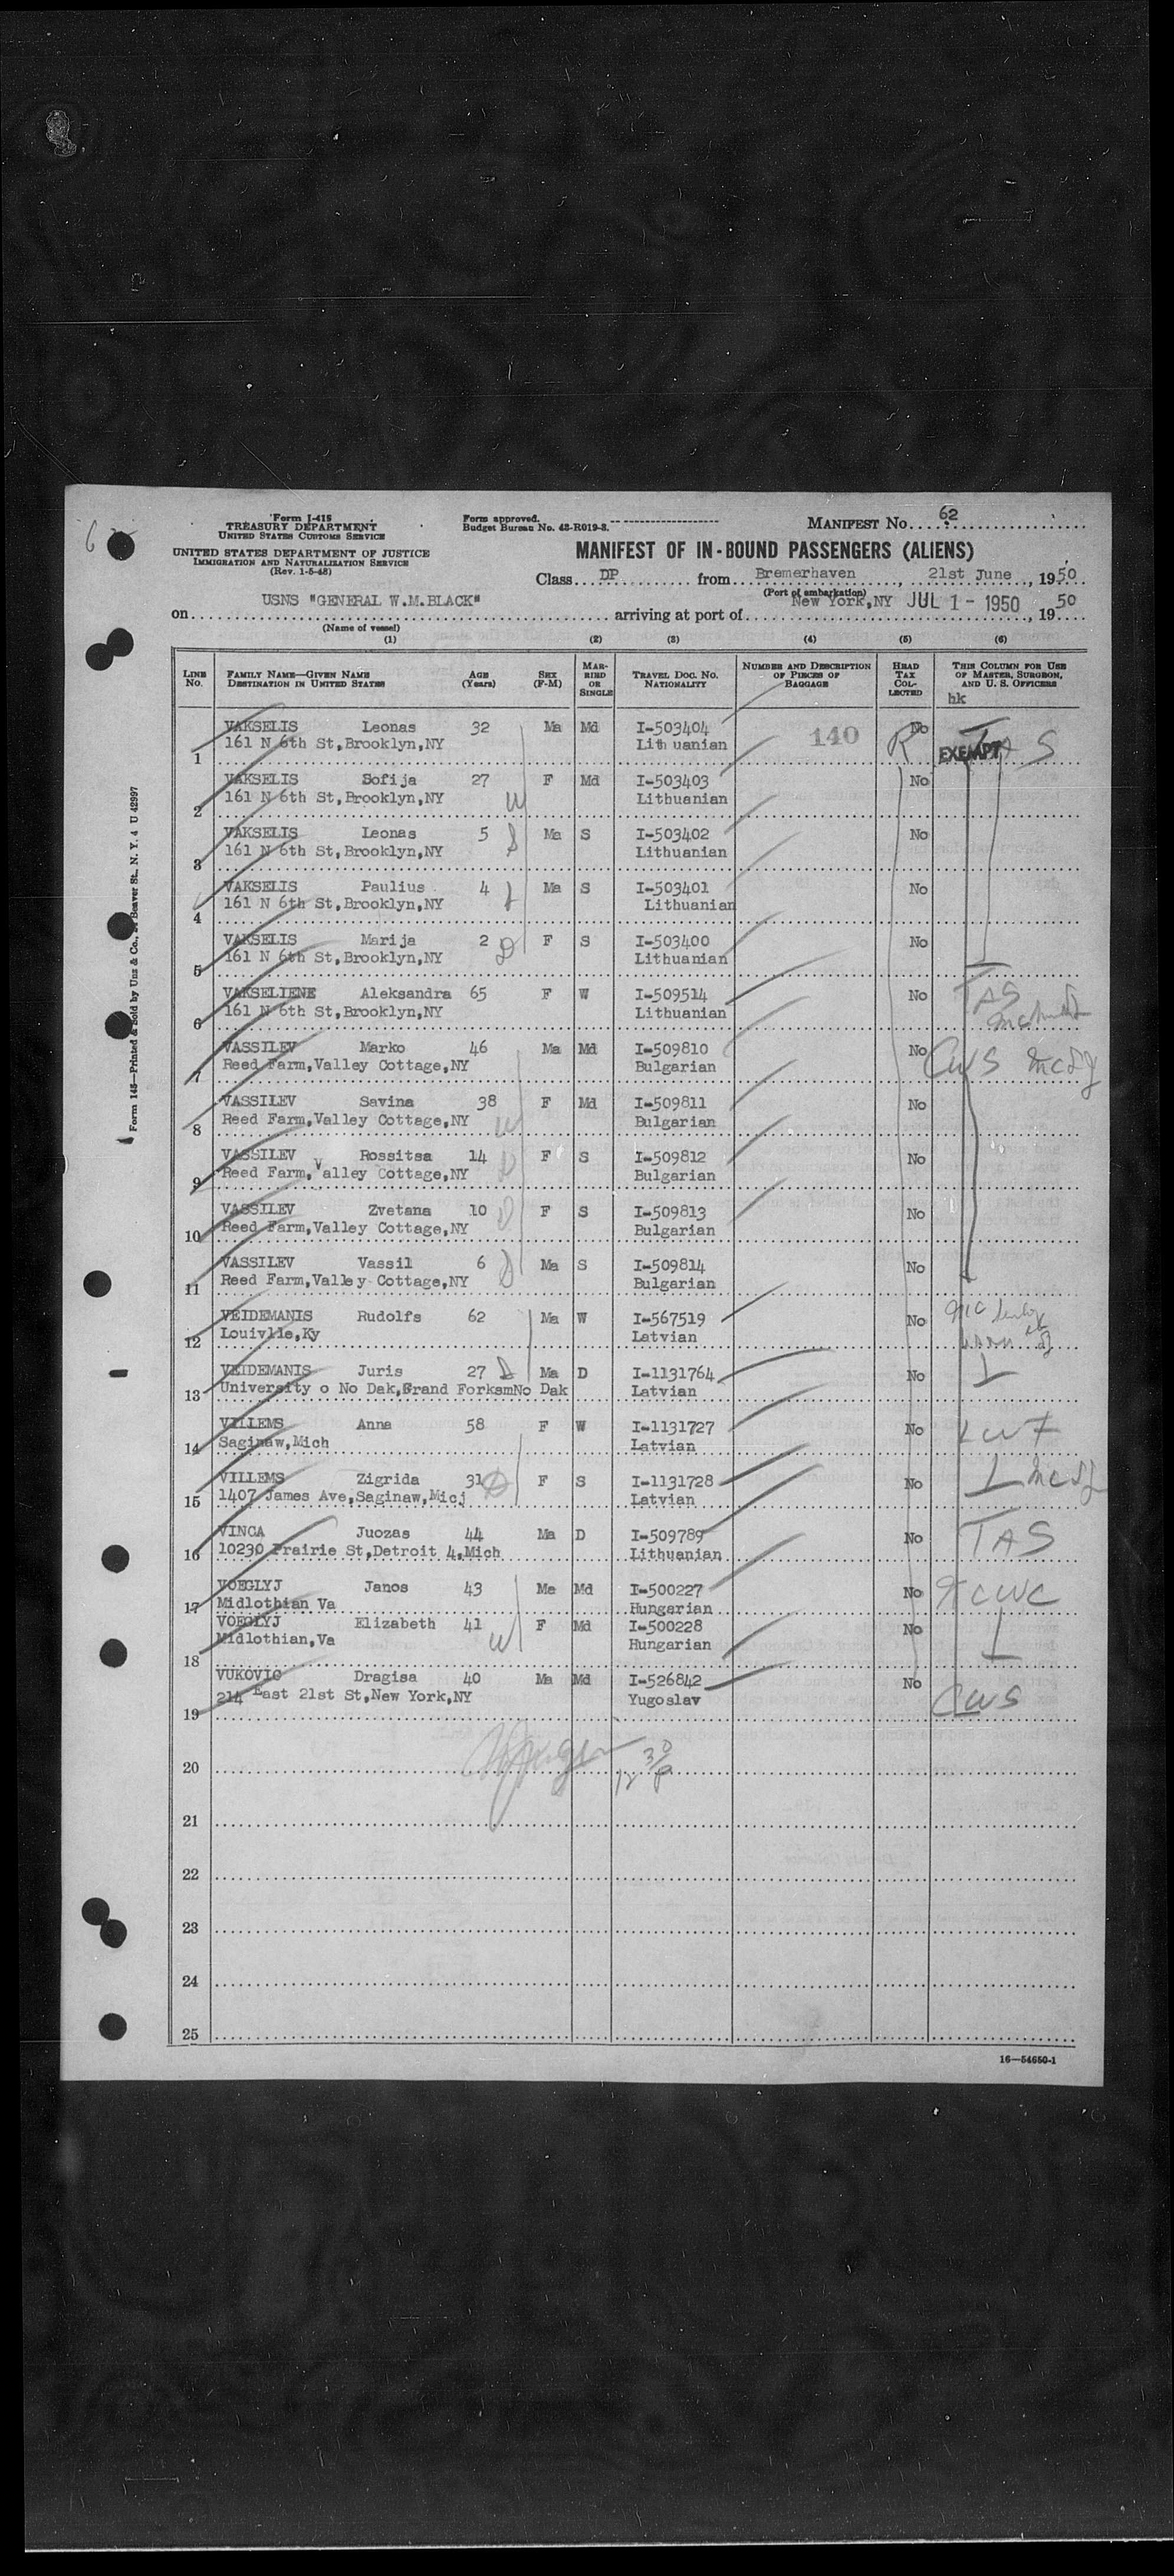 Form I-415
TREASURY DEPARTMENT
UNITED STATES CUSTOMS SERVICE
UNITED STATES DEPARTMENT OF JUSTICE
IMMIGRATION AND NATURALIZATION SERVICE
(Rev. 1-5-48)
Form approved.
Budget Bureau No. 43-R019-3.
MANIFEST No. 62
MANIFEST OF IN-BOUND PASSENGERS (ALIENS)
Class DP from Bremerhaven, 21st June, 1950
(Port of embarkation)
on USNS "GENERAL W.M.BLACK" arriving at port of New York,NY JUL 1 - 1950, 1950
(Name of vessel)
(1) (2) (3) (4) (5) (6)
LINE No. FAMILY NAME—GIVEN NAME DESTINATION IN UNITED STATES AGE (Years) SEX (F-M) MARRIED OR SINGLE TRAVEL DOC. No. NATIONALITY NUMBER AND DESCRIPTION OF PIECES OF BAGGAGE HEAD TAX COLLECTED THIS COLUMN FOR USE OF MASTER, SURGEON, AND U. S. OFFICERS
hk
VAKSELIS Leonas 32 Ma Md I-503404 140 R No TAS
1 161 N 6th St,Brooklyn,NY Lith uanian EXEMPT
VAKSELIS Sofija 27 F Md I-503403 No
2 161 N 6th St,Brooklyn,NY W Lithuanian
VAKSELIS Leonas 5 Ma S I-503402 No
3 161 N 6th St,Brooklyn,NY Lithuanian
VAKSELIS Paulius 4 Ma S I-503401 No
4 161 N 6th St,Brooklyn,NY Lithuanian
VAKSELIS Marija 2 F S I-503400 No
5 161 N 6th St,Brooklyn,NY Lithuanian
VAKSELIENE Aleksandra 65 F W I-509514 No TAS
6 161 N 6th St,Brooklyn,NY Lithuanian
VASSILEV Marko 46 Ma Md I-509810 No CWS
7 Reed Farm,Valley Cottage,NY Bulgarian
VASSILEV Savina 38 F Md I-509811 No
8 Reed Farm,Valley Cottage,NY W Bulgarian
VASSILEV Rossitsa 14 F S I-509812 No
9 Reed Farm,Valley Cottage,NY Bulgarian
VASSILEV Zvetana 10 F S I-509813 No
10 Reed Farm,Valley Cottage,NY Bulgarian
VASSILEV Vassil 6 Ma S I-509814 No
11 Reed Farm,Valley Cottage,NY Bulgarian
VEIDEMANIS Rudolfs 62 Ma W I-567519 No
12 Louivlle,Ky Latvian
VEIDEMANIS Juris 27 Ma D I-1131764 No
13 University o No Dak,Grand ForksmNo Dak Latvian
VILLEMS Anna 58 F W I-1131727 No LWF
14 Saginaw,Mich Latvian
VILLEMS Zigrida 31 F S I-1131728 No
15 1407 James Ave,Saginaw,Micj Latvian
VINCA Juozas 44 Ma D I-509789 No TAS
16 10230 Prairie St,Detroit 4,Mich Lithuanian
VOEGLYJ Janos 43 Ma Md I-500227 No
17 Midlothian Va Hungarian
VOEGLYJ Elizabeth 41 F Md I-500228 No
18 Midlothian,Va W Hungarian
VUKOVIC Dragisa 40 Ma Md I-526842 No CWS
19 214 East 21st St,New York,NY Yugoslav
20
21
22
23
24
25
16—54650-1
Form 145—Printed & Sold by Unz & Co., 24 Beaver St., N. Y. 4 U 42997